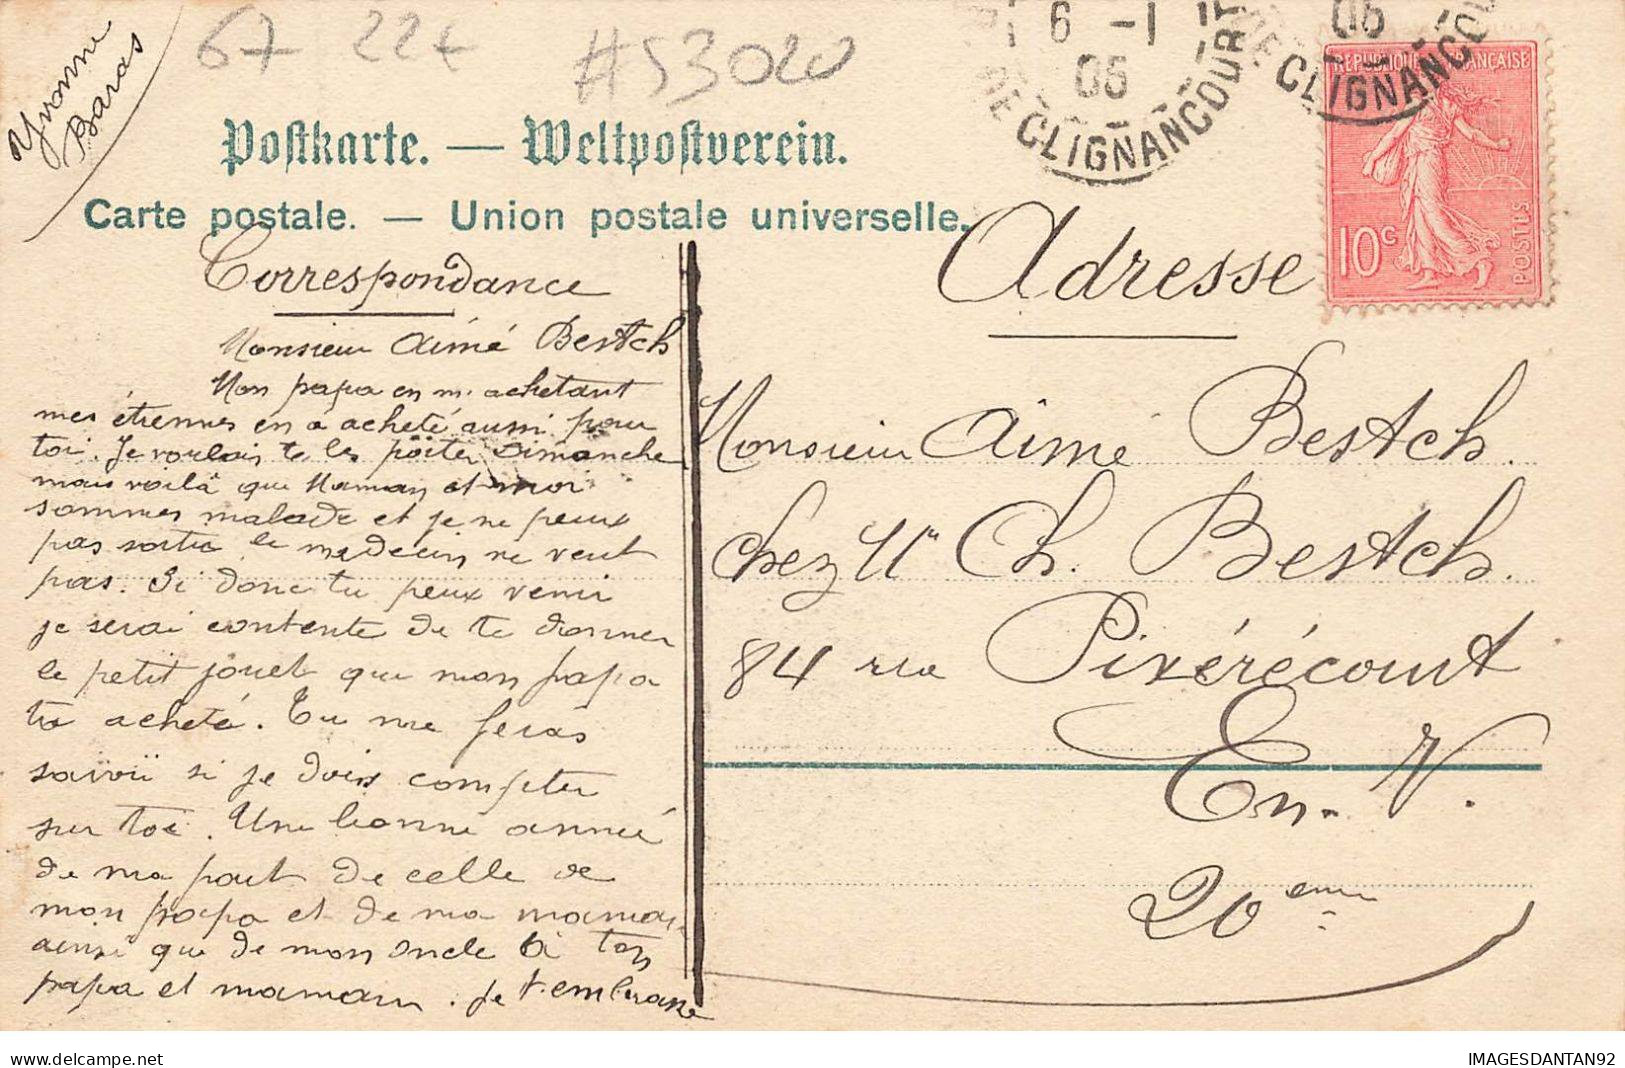 Yvonne
Baras
67 224
#53020
Postkarte. — Weltpostverein.
Carte postale. — Union postale universelle.
6 -1
05
DE CLIGNANCOURT
05
DE CLIGNANCOU
REPUBLIQUE FRANÇAISE
10c
POSTES
Correspondance
Monsieur Aimé Bestch
Mon papa en m'achetant
mes étiennes en a acheté aussi pour
toi. Je voulais te les poiter Dimanche
mais voilà que Maman et moi
sommes malade et je ne peux
pas sortir le medecin ne veut
pas. Si donc tu peux venir
je serai contente de te donner
le petit jouet que mon papa
t'a acheté. Tu me feras
savoir si je dois compter
sur toi. Une bonne année
de ma part de celle de
mon papa et de ma maman
ainsi que de mon oncle à ton
papa et maman. Je t'embrasse
Adresse
Monsieur Aimé Bestch.
chez Mr Ch. Bestch.
84 rue Pixérécourt
En-V.
20eme
IMAGESDANTAN92
www.delcampe.net